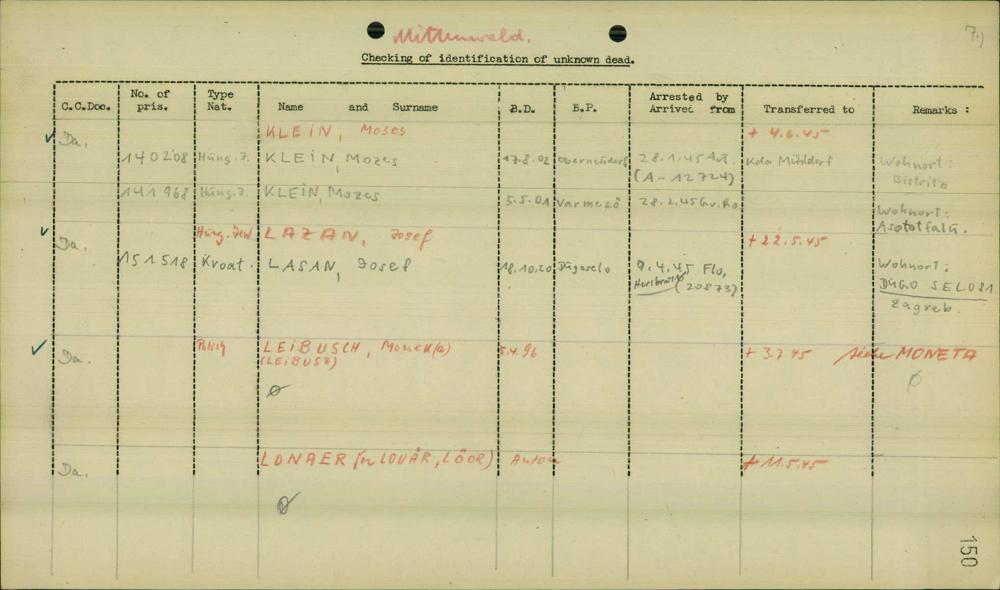 Mittenwald.
7.)
Checking of identification of unknown dead.
C.C.Doc. No. of pris. Type Nat. Name and Surname B.D. B.P. Arrested by Arrived from Transferred to Remarks :
Da. KLEIN, Moses + 4.6.45
140208 Hung. J. KLEIN, Mozes 17.8.02 28.1.45 Au. Kdo Mühldorf Wohnort:
(A-12724) Bistritz
141968 Hung. J. KLEIN, Mozes 5.5.01 Varmezö 28.2.45 Gr. Ro Wohnort:
Da. Hung. Jew LAZAN, Josef + 22.5.45
151518 Kroat. LASAN, Josef 18.10.20 Dugoselo 9.4.45 Flo, Wohnort:
(20873) DUGO SELO 81
Zagreb.
Da. Polish LEIBUSCH, Monek(a) 5.4.96 + 3.7.45 siehe MONETA
(LEIBUSZ)
Da. LONAER (or LOUÁR, LÖOR) Anton + 11.5.45
150